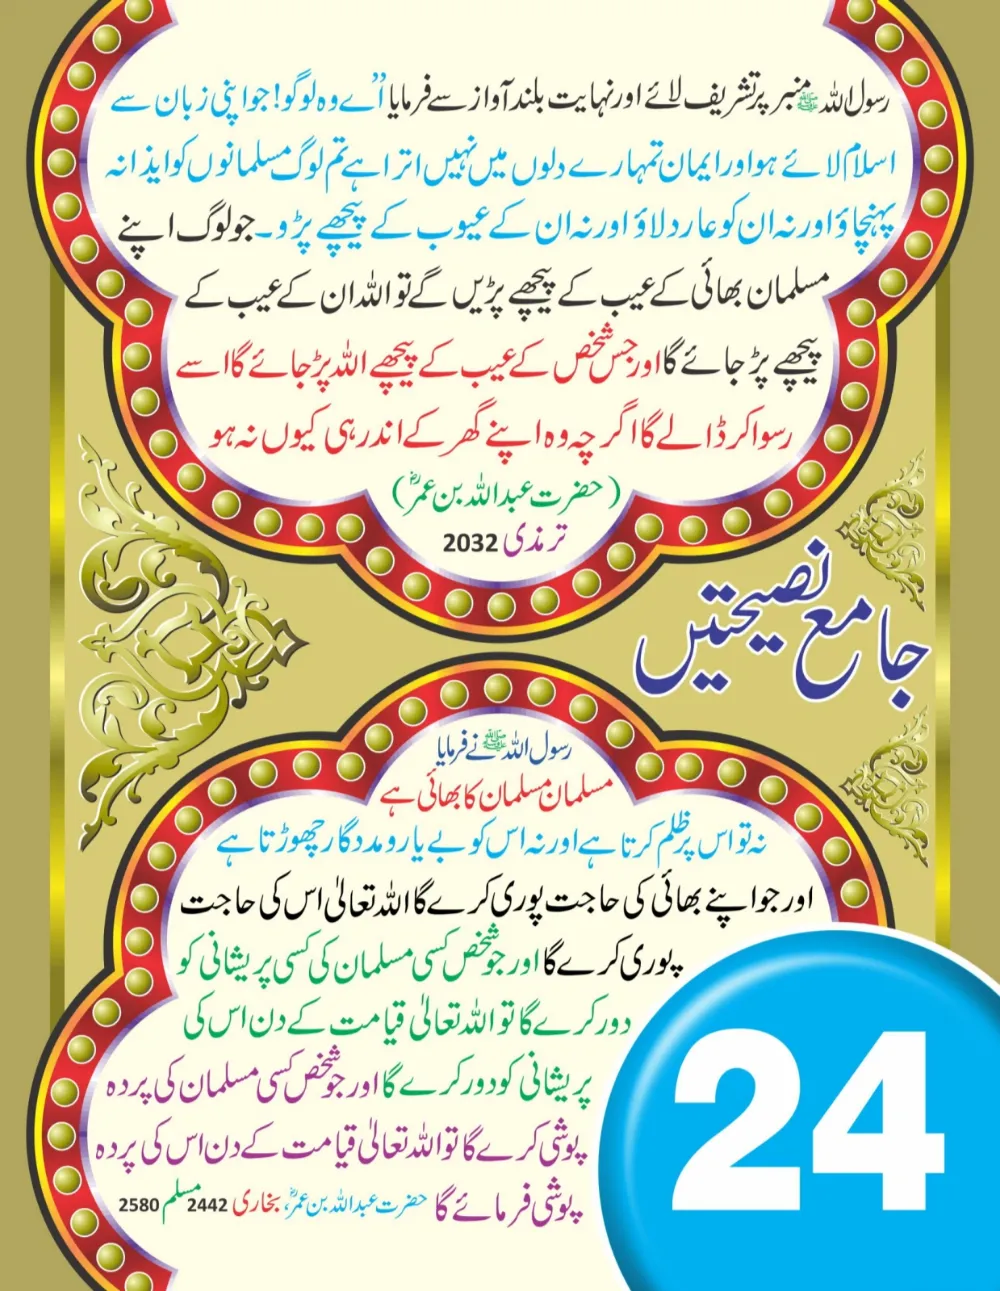 رسول اللہ ﷺ منبر پر تشریف لائے اور نہایت بلند آواز سے فرمایا ”اے وہ لوگو! جو اپنی زبان سے
اسلام لائے ہو اور ایمان تمہارے دلوں میں نہیں اترا ہے تم لوگ مسلمانوں کو ایذا نہ
پہنچاؤ اور نہ ان کو عار دلاؤ اور نہ ان کے عیوب کے پیچھے پڑو۔ جو لوگ اپنے
مسلمان بھائی کے عیب کے پیچھے پڑیں گے تو اللہ ان کے عیب کے
پیچھے پڑ جائے گا اور جس شخص کے عیب کے پیچھے اللہ پڑ جائے گا اسے
رسوا کر ڈالے گا اگرچہ وہ اپنے گھر کے اندر ہی کیوں نہ ہو
(حضرت عبداللہ بن عمرؓ)
ترمذی 2032
جامع نصیحتیں
رسول اللہ ﷺ نے فرمایا
مسلمان مسلمان کا بھائی ہے
نہ تو اس پر ظلم کرتا ہے اور نہ اس کو بے یار و مددگار چھوڑتا ہے
اور جو اپنے بھائی کی حاجت پوری کرے گا اللہ تعالیٰ اس کی حاجت
پوری کرے گا اور جو شخص کسی مسلمان کی کسی پریشانی کو
دور کرے گا تو اللہ تعالیٰ قیامت کے دن اس کی
پریشانی کو دور کرے گا اور جو شخص کسی مسلمان کی پردہ
پوشی کرے گا تو اللہ تعالیٰ قیامت کے دن اس کی پردہ
پوشی فرمائے گا حضرت عبداللہ بن عمرؓ، بخاری 2442 مسلم 2580
24